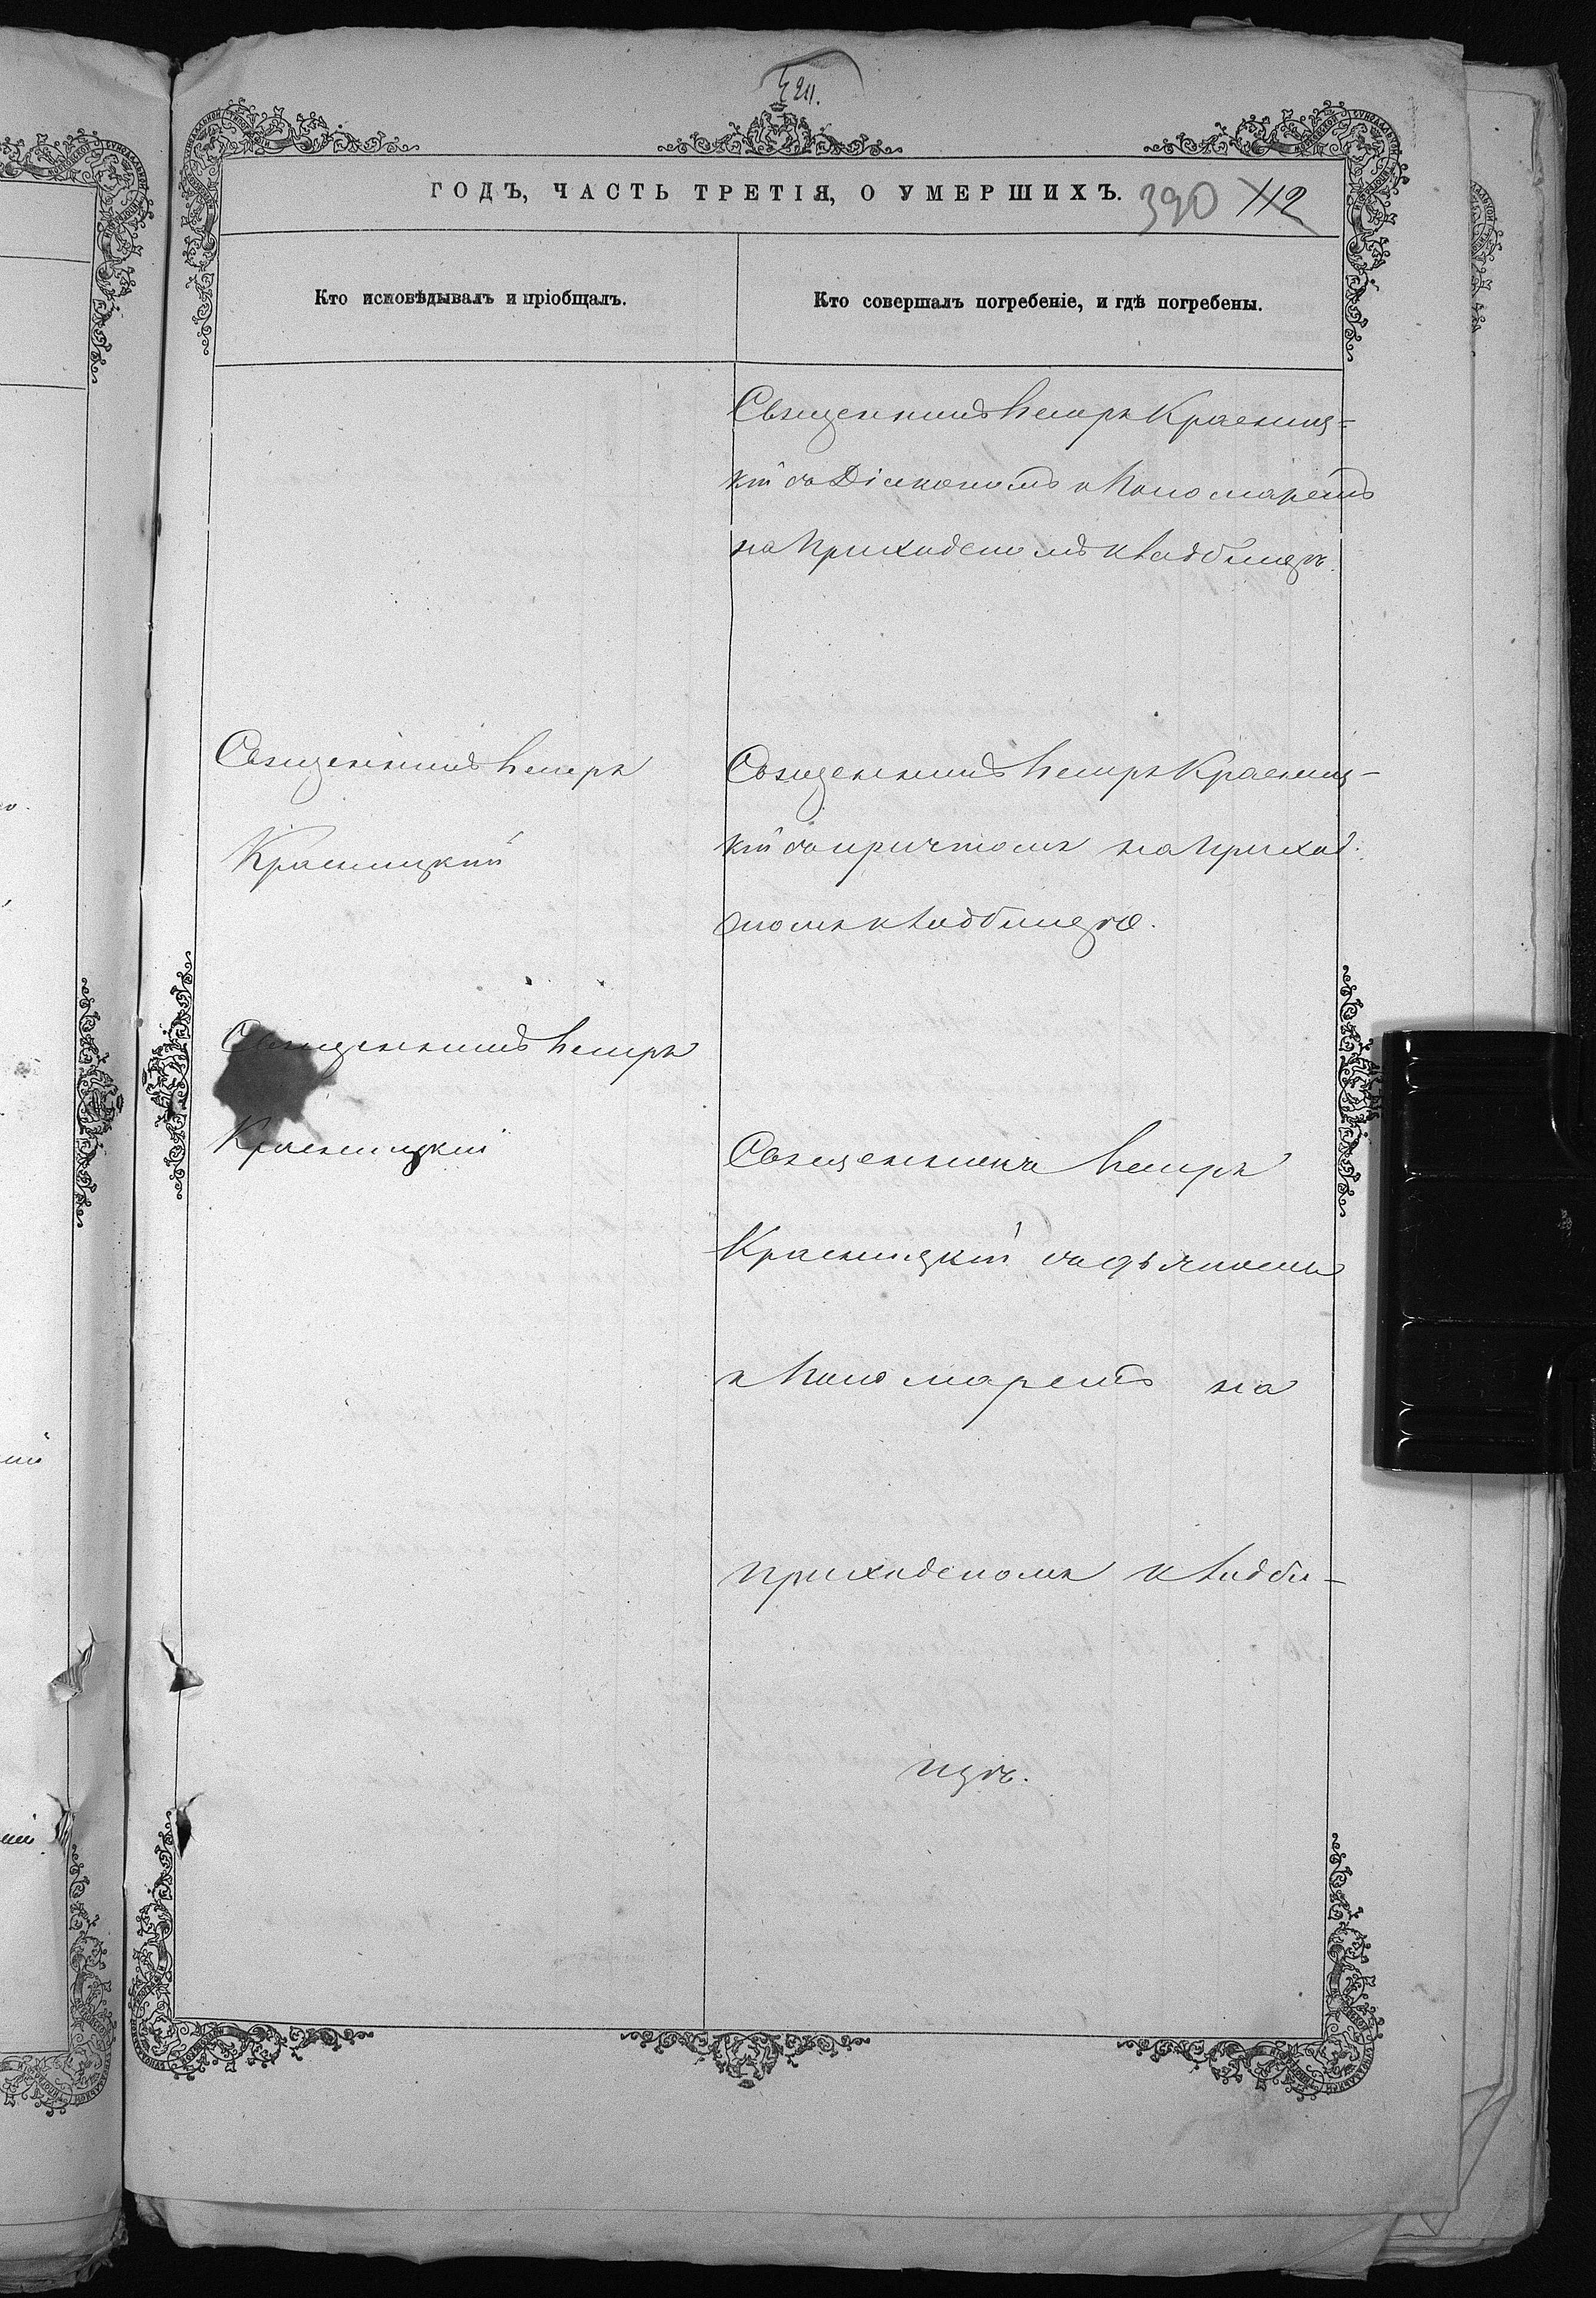 ГОДЪ, ЧАСТЬ ТРЕТІЯ, О УМЕРШИХЪ. 390 112
Кто исповѣдывалъ и пріобщалъ.
Кто совершалъ погребеніе, и гдѣ погребены.
Священникъ Петръ Красниц=
кій съ Діакономъ и Пономаремъ
на Приходскомъ кладбищѣ.
Священникъ Петръ
Красницкій
Священникъ Петръ Красниц-
кій съ причтомъ на приход.
скомъ кладбищѣ.
Священникъ Петръ
Красницкій
Священникъ Петръ
Красницкій съ дьякомъ
и Пономаремъ на
приходскомъ кладби-
щѣ.